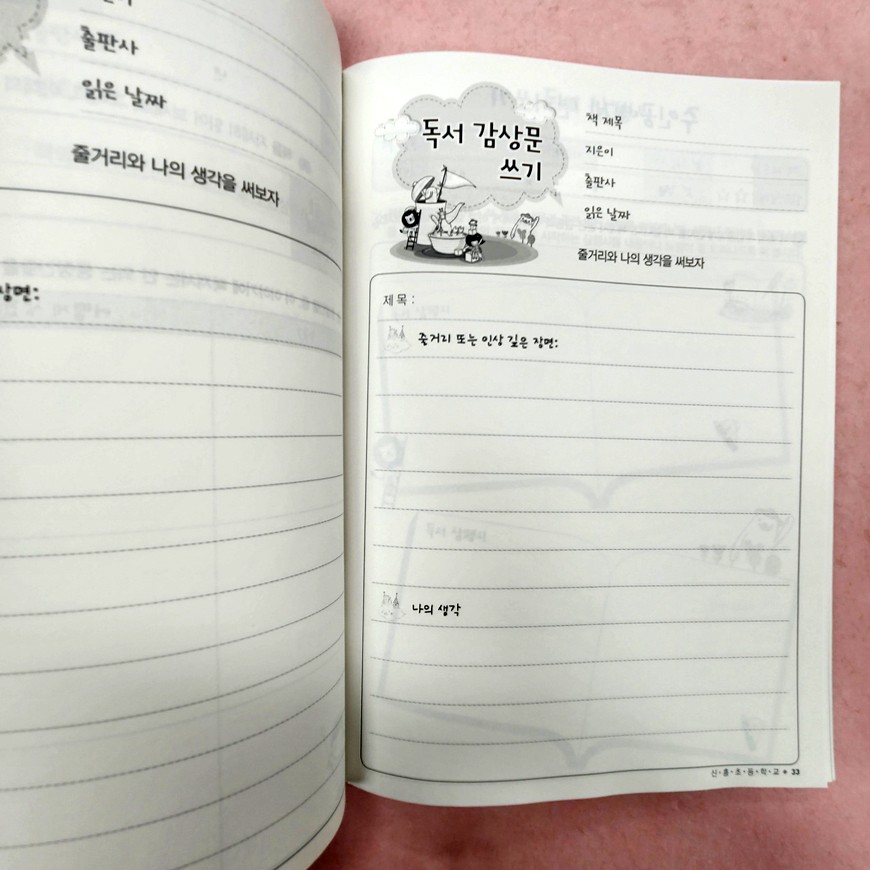 출판사
읽은 날짜
줄거리와 나의 생각을 써보자
장면:
독서 감상문
쓰기
책 제목
지은이
출판사
읽은 날짜
줄거리와 나의 생각을 써보자
제목 :
줄거리 또는 인상 깊은 장면:
나의 생각
신•흥•초•등•학•교 • 33